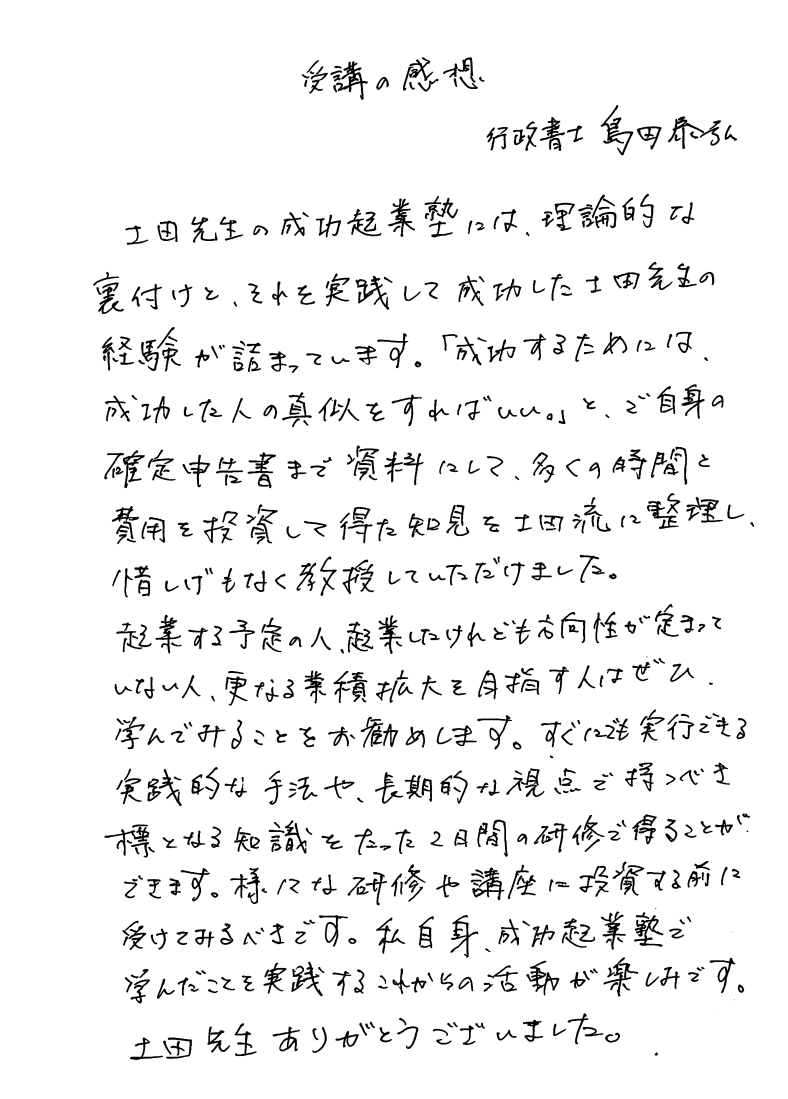 受講の感想
行政書士 島田恭弘
土田先生の成功起業塾には、理論的な
裏付けと、それを実践して成功した土田先生の
経験が詰まっています。「成功するためには、
成功した人の真似をすればいい。」と、ご自身の
確定申告書まで資料にして、多くの時間と
費用を投資して得た知見を土田流に整理し、
惜しげもなく教授していただけました。
起業する予定の人、起業したけれども方向性が定まって
いない人、更なる業績拡大を目指す人はぜひ、
学んでみることをお勧めします。すぐにでも実行できる
実践的な手法や、長期的な視点で持つべき
標となる知識をたった2日間の研修で得ることが
できます。様々な研修や講座に投資する前に
受けてみるべきです。私自身、成功起業塾で
学んだことを実践するこれからの活動が楽しみです。
土田先生ありがとうございました。